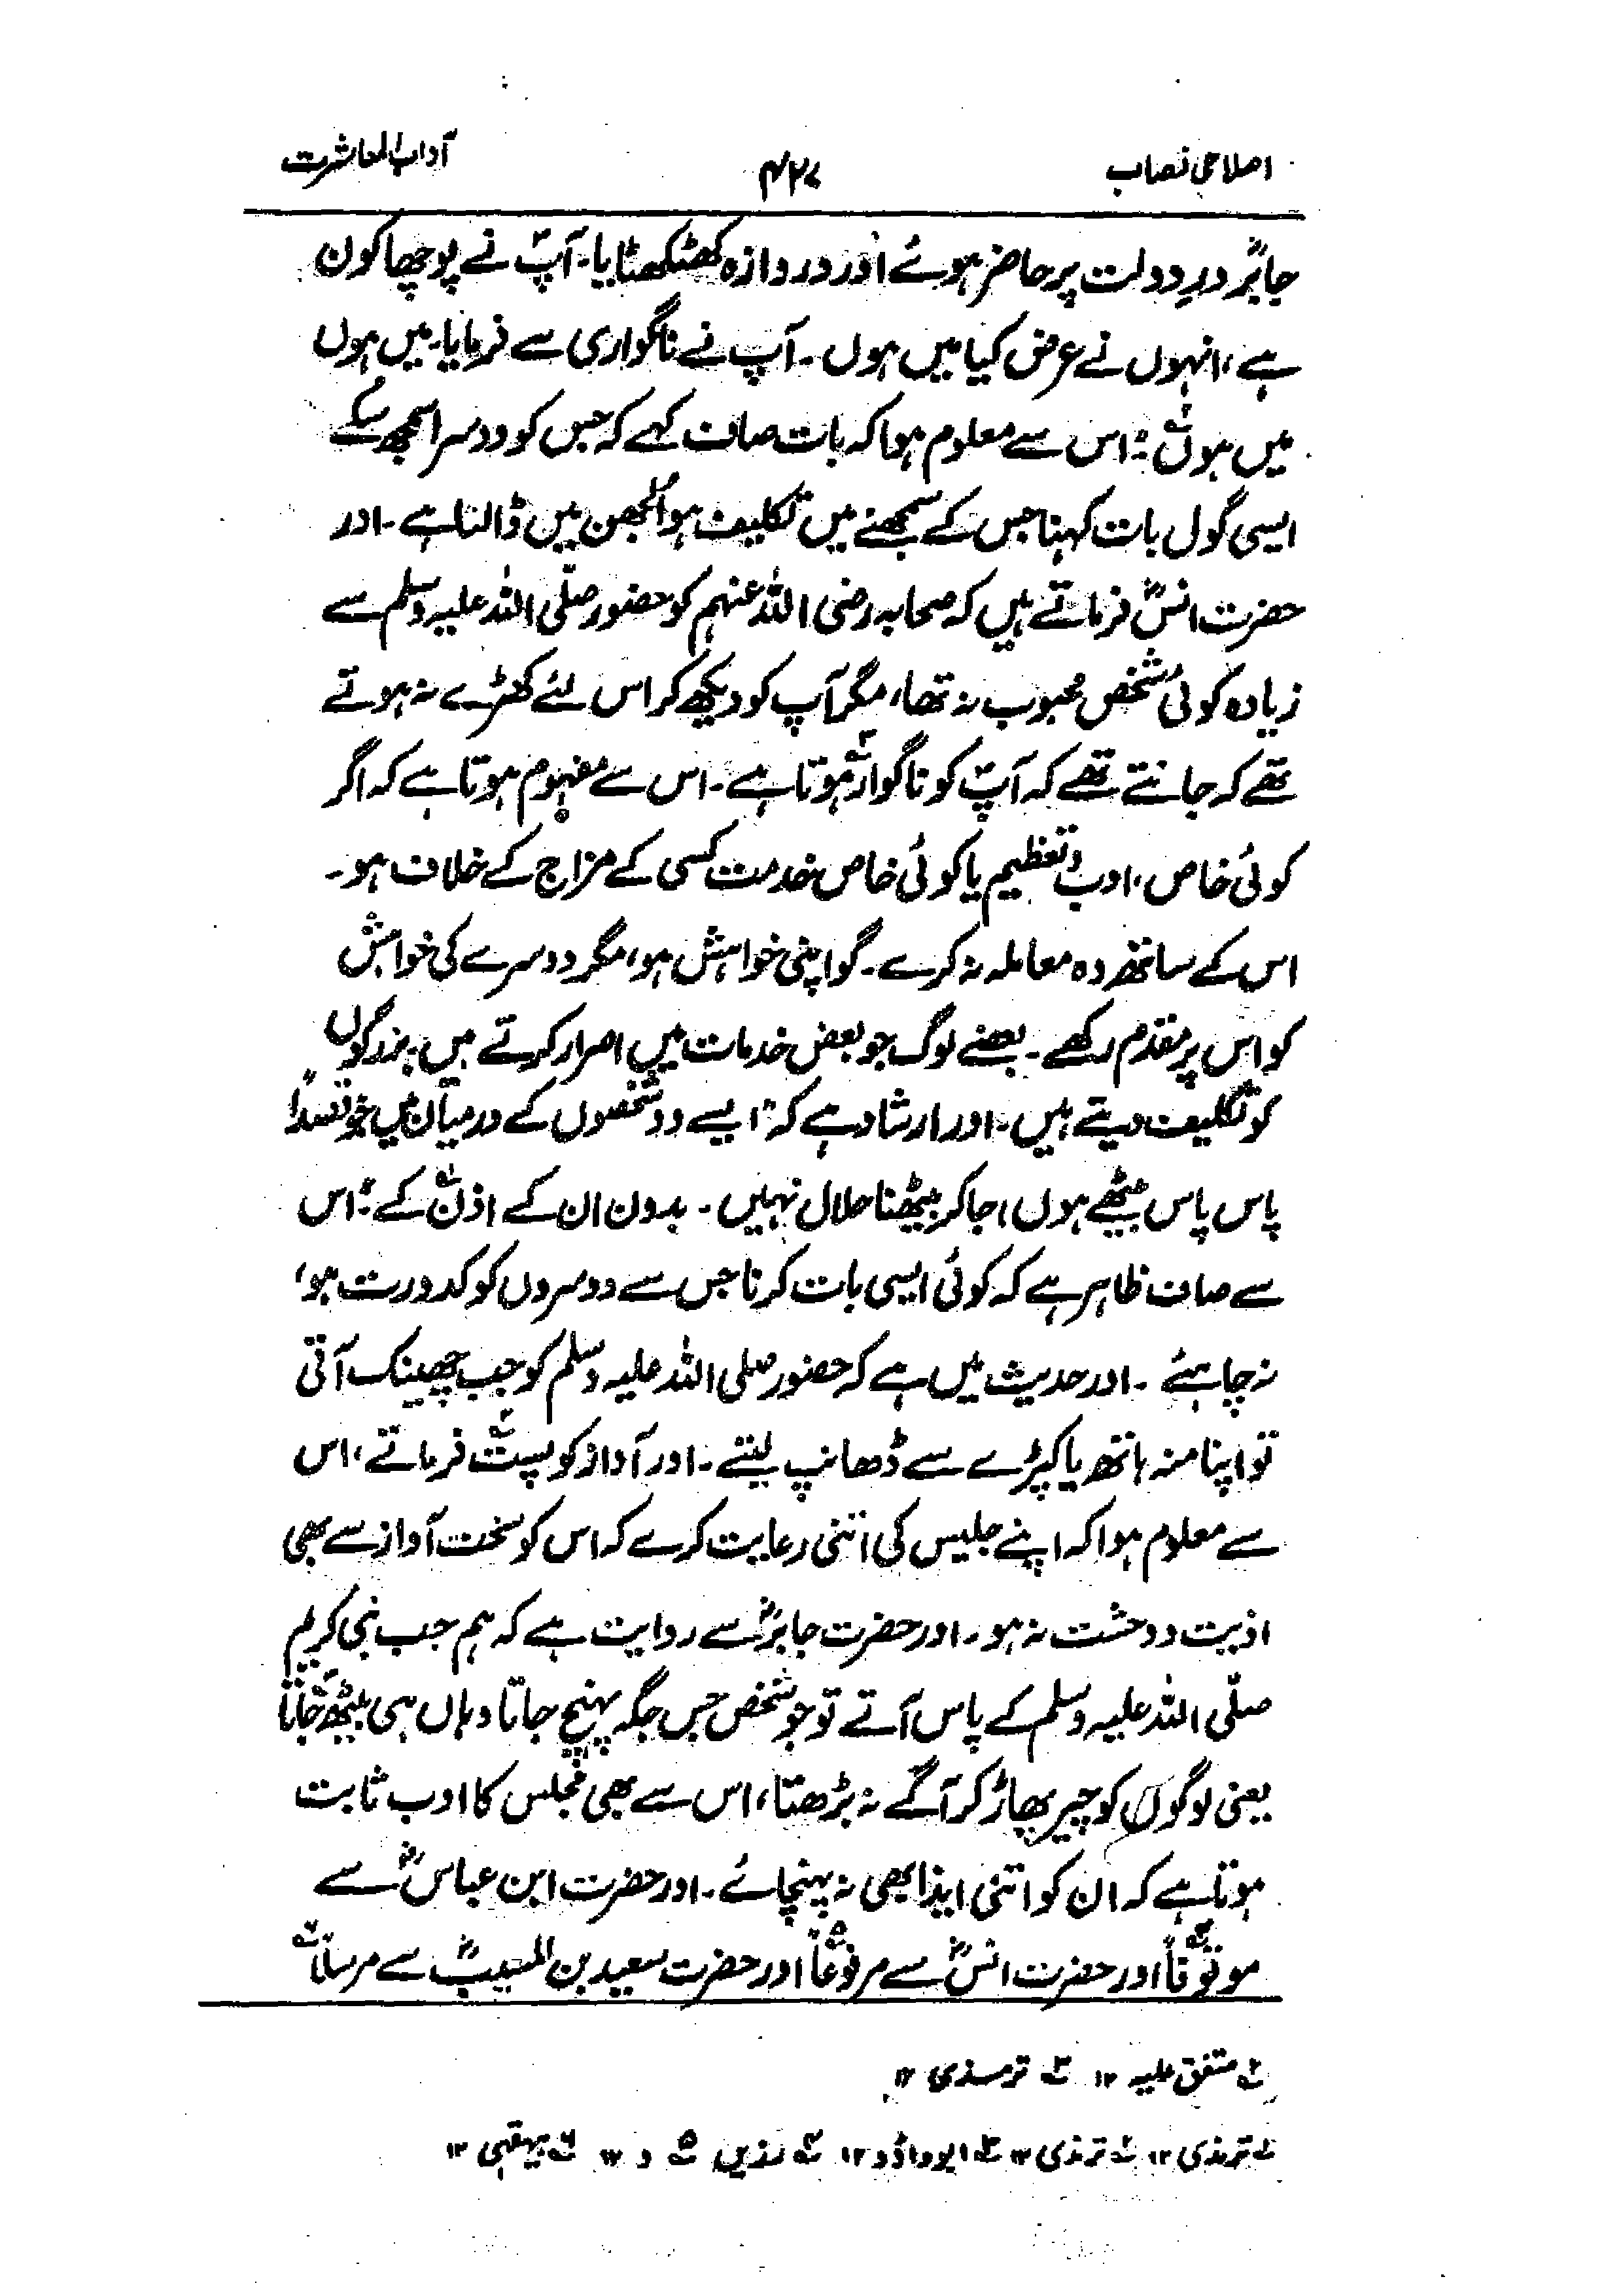 اصلاحی نصاب ۴۲۷ آداب المعاشرت
جابرؓ درِ دولت پر حاضر ہوئے اور دروازہ کھٹکھٹایا۔ آپؐ نے پوچھا کون
ہے، انہوں نے عرض کیا میں ہوں۔ آپ نے ناگواری سے فرمایا۔ میں ہوں
میں ہوں لہ؛ اس سے معلوم ہوا کہ بات صاف کہے کہ جس کو دوسرا سمجھ سکے
ایسی گول بات کہنا جس کے سمجھنے میں تکلیف ہو الجھن میں ڈالنا ہے۔ اور
حضرت انسؓ فرماتے ہیں کہ صحابہ رضی اللہ عنہم کو حضور صلّی اللہ علیہ وسلم سے
زیادہ کوئی شخص محبوب نہ تھا، مگر آپ کو دیکھ کر اس لئے کھڑے نہ ہوتے
تھے کہ جانتے تھے کہ آپؐ کو ناگوار ۲ہ ہوتا ہے۔ اس سے مفہوم ہوتا ہے کہ اگر
کوئی خاص، ادب و تعظیم یا کوئی خاص خدمت کسی کے مزاج کے خلاف ہو۔
اس کے ساتھ وہ معاملہ نہ کرے۔ گو اپنی خواہش ہو، مگر دوسرے کی خواہش
کو اس پر مقدم رکھے۔ بعضے لوگ جو بعض خدمات میں اصرار کرتے ہیں، بزرگوں
کو تکلیف دیتے ہیں۔ اور ارشاد ہے کہ "ایسے دو شخصوں کے درمیان میں جو قصداً
پاس پاس بیٹھے ہوں، جا کر بیٹھنا حلال نہیں۔ بدون ان کے اذن لہ کے؛ اس
سے صاف ظاہر ہے کہ کوئی ایسی بات کرنا جس سے دوسروں کو کدورت ہو،
نہ چاہئے۔ اور حدیث میں ہے کہ حضور صلی اللہ علیہ وسلم کو جب چھینک آتی
تو اپنا منہ ہاتھ یا کپڑے سے ڈھانپ لیتے۔ اور آواز کو پست ۲ہ فرماتے، اس
سے معلوم ہوا کہ اپنے جلیس کی اتنی رعایت کرے کہ اس کو سخت آواز سے بھی
اذیت و وحشت نہ ہو۔ اور حضرت جابرؓ سے روایت ہے کہ ہم جب نبی کریم
صلّی اللہ علیہ وسلم کے پاس آتے تو جو شخص جس جگہ پہنچ جاتا وہاں ہی بیٹھ جاتا
یعنی لوگوں کو چیر پھاڑ کر آگے نہ بڑھتا، اس سے بھی مجلس کا ادب ثابت
ہوتا ہے کہ ان کو اتنی ایذا بھی نہ پہنچائے۔ اور حضرت ابن عباسؓ سے
موقوفاً ۴ہ اور حضرت انسؓ سے مرفوعاً ۵ہ اور حضرت سعید بن المسیبؒ سے مرسلاً ۶ہ
لہ متفق علیہ ۱۲ ۲ہ ترمذی ۱۲
لہ ترمذی ۱۲ ۲ہ ترمذی ۱۲ ۳ہ ابوداؤد ۱۲ ۴ہ رزیں ۵ہ و ۱۲ ۶ہ بیہقی ۱۲